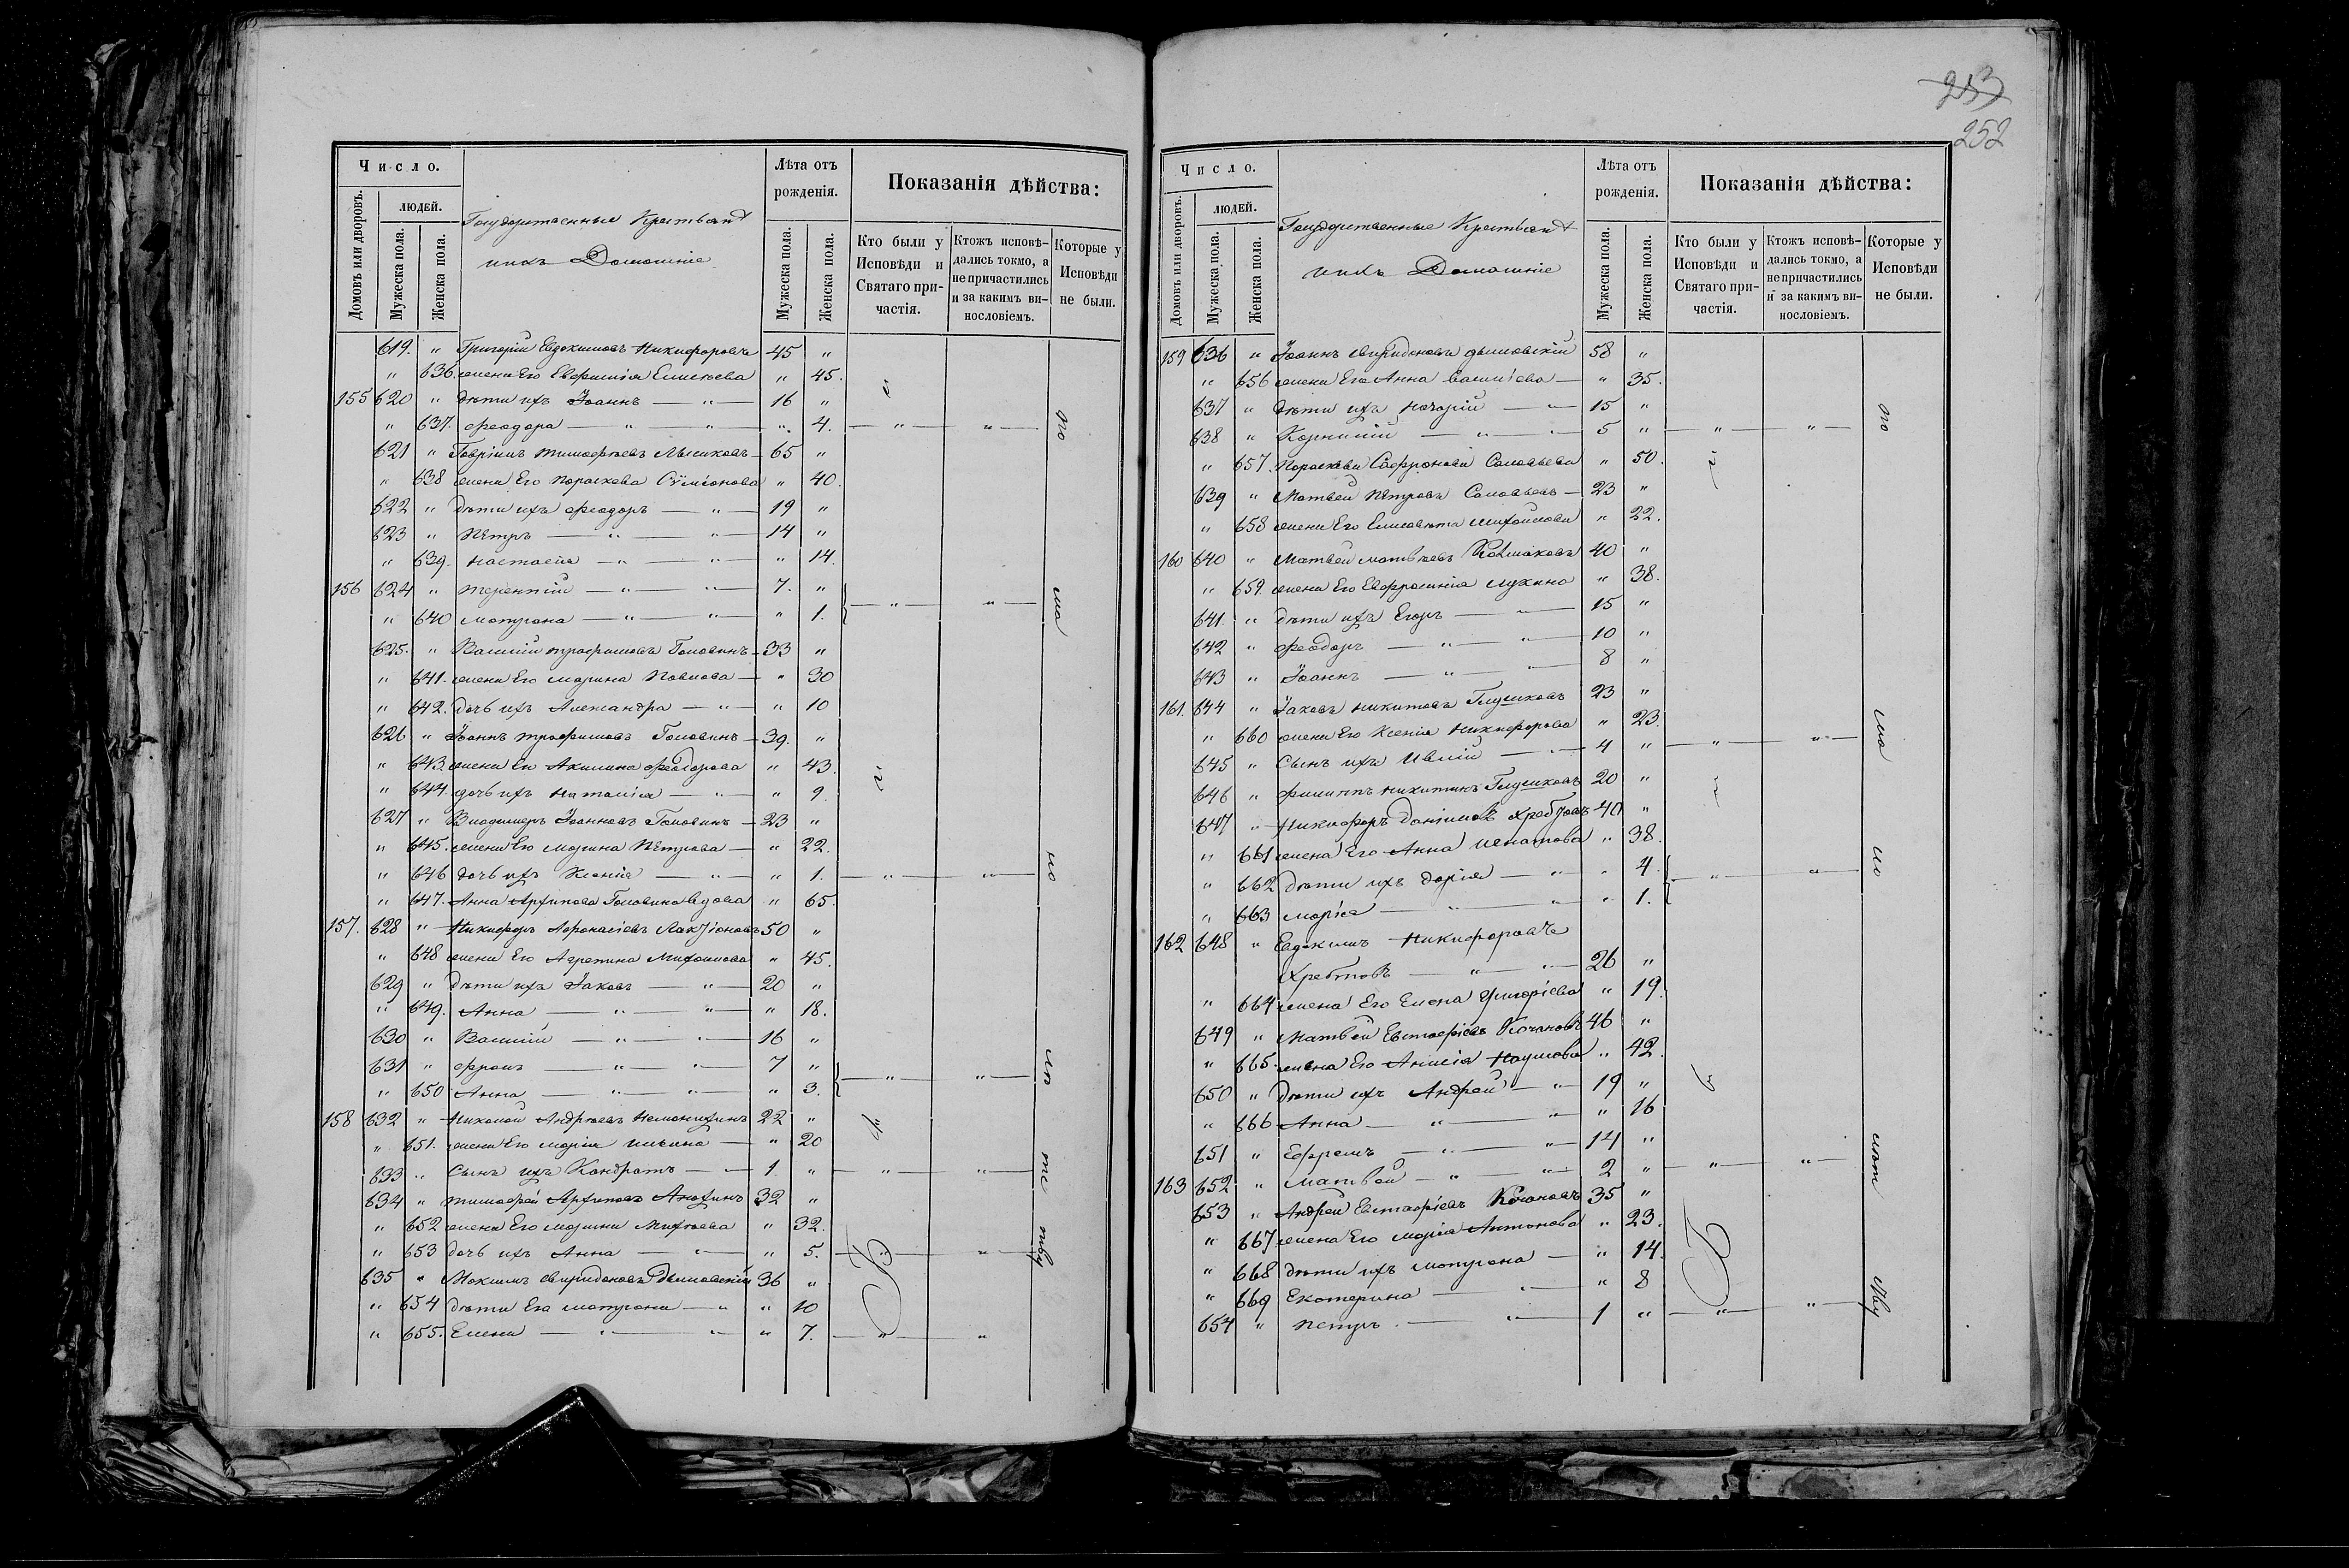 253
252
Число.
Домовъ или дворовъ.
людей.
Мужеска пола.
Женска пола.
Государственные Крестьяне
ихъ Домашніе
Лѣта отъ рожденія.
Мужеска пола.
Женска пола.
Показанія дѣйства:
Кто были у Исповѣди и Святаго причастія.
Ктожъ исповѣдались токмо, а не причастились и за какимъ винословіемъ.
Которые у Исповѣди не были.
619. " Григорій Евдокимовъ Никифоровъ 45 "
" 636. жена Его Евфимія Елисѣева " 45.
155 620 " дѣти ихъ Іоаннъ — " — 16 "
" 637. Феодора — " — " — " 4. — " — " —
621 " Гавріилъ Тимофѣевъ — 65 "
" 638 жена Его Параскева Сѵмеонова " 40.
622 " дѣти ихъ Феодоръ — " — 19 "
623 " Петръ — " — " — 14 "
" 639. Настасія — " — " — " 14.
156 624 " Терентій — " — " — 7. "
" 640 Матрона — " — " — " 1. — " — " —
625. " Василій Трофимовъ Головинъ — 33 "
" 641. жена Его Марина Павлова — " 30
" 642. дочь ихъ Александра — " — " 10
626 " Іоаннъ Трофимовъ Головинъ — 39. "
" 643. жена Его Акилина Феодорова " 43.
" 644. дочь ихъ Наталія — " — " 9.
627 " Владимеръ Іоанновъ Головинъ — 23 "
" 645. жена Его Марина Петрова — " 22.
" 646 дочь ихъ Ксенія — " — " 1. — " — " —
" 647. Анна Архипова Головина вдова " 65.
157. 628 " Никифоръ Афанасіевъ Лактіоновъ 50 "
" 648 жена Его Агрепина Михайлова " 45.
629 " дѣти ихъ Іаковъ — " — 20 "
" 649. Анна — " — " — " 18.
630 " Василій — " — " — 16 "
631 " Фролъ — " — " — 7 "
" 650 Анна — " — " — " 3. — " — " —
158 632 " Николай Андреевъ 22 "
" 651. жена Его Марія Ильина — " 20
633 " Сынъ ихъ Кондратъ — " — 1 " — " — " —
634 " Тимофей Архиповъ 32 "
" 652 жена Его Марина Михѣева " 32.
" 653 дочь ихъ Анна — " — " 5. — " — " —
635 " Максимъ Свиридоновъ Дымовскій 36 "
" 654 дѣти Его Матрона — " " 10
" 655. Елена — " — " — " 7. — " — "
Число.
Домовъ или дворовъ.
людей.
Мужеска пола.
Женска пола.
Государственные Крестьяне
ихъ Домашніе
Лѣта отъ рожденія.
Мужеска пола.
Женска пола.
Показанія дѣйства:
Кто были у Исповѣди и Святаго причастія.
Ктожъ исповѣдались токмо, а не причастились и за какимъ винословіемъ.
Которые у Исповѣди не были.
159 636 " Іоаннъ Свиридоновъ Дымовскій 58 "
" 656 жена Его Анна Василіева — " 35.
637 " дѣти ихъ Назарій — " — 15 "
638 " Корнилій — " — " — 5 " — " — " —
" 657. Параскева Сафронова Соловьева " 50.
639 " Матвей Петровъ Соловьевъ — 23 "
" 658 жена Его Елисавета Михайлова " 22.
160 640 " Матвей Матвѣевъ 40 "
" 659. жена Его Евфросинія Лукина " 38.
641. " дѣти ихъ Егоръ — " — 15 "
642 " Феодоръ — " — " — 10 "
643 " Іоаннъ — " — " — 8 "
161. 644 " Іаковъ Никитовъ Глушковъ 23 "
" 660 жена Его Ксенія Никифорова " 23.
645 " Сынъ ихъ — " — 4 " — " — " —
646 " Филиппъ Никитинъ Глушковъ 20 "
647 " Никифоръ Даніиловъ Хребтовъ 40 "
" 661 жена Его Анна Игнатова " 38.
" 662 дѣти ихъ Дарія — " — " 4. — " — " —
" 663 Марія — " — " — " 1.
162 648 " Евдокимъ Никифоровъ
Хребтовъ — " — " — 26 "
" 664 жена Его Елена Григоріева " 19.
649 " Матвей Евстафіевъ Кочановъ 46 "
" 665. жена Его Анисія Наумова " 42.
650 " дѣти ихъ Андрей — " — 19 "
" 666 Анна — " — " — " 16
651 " Ефремъ — " — " — 14 "
163 652 " Матвей — " — " — 2 " — " — " —
653 " Андрей Евстафіевъ Кочановъ 35 "
" 667. жена Его Марія Антонова " 23.
" 668 дѣти ихъ Матрона — " 14.
" 669 Екатерина — " — " 8
654 " Петръ — " — 1 " — " — " —